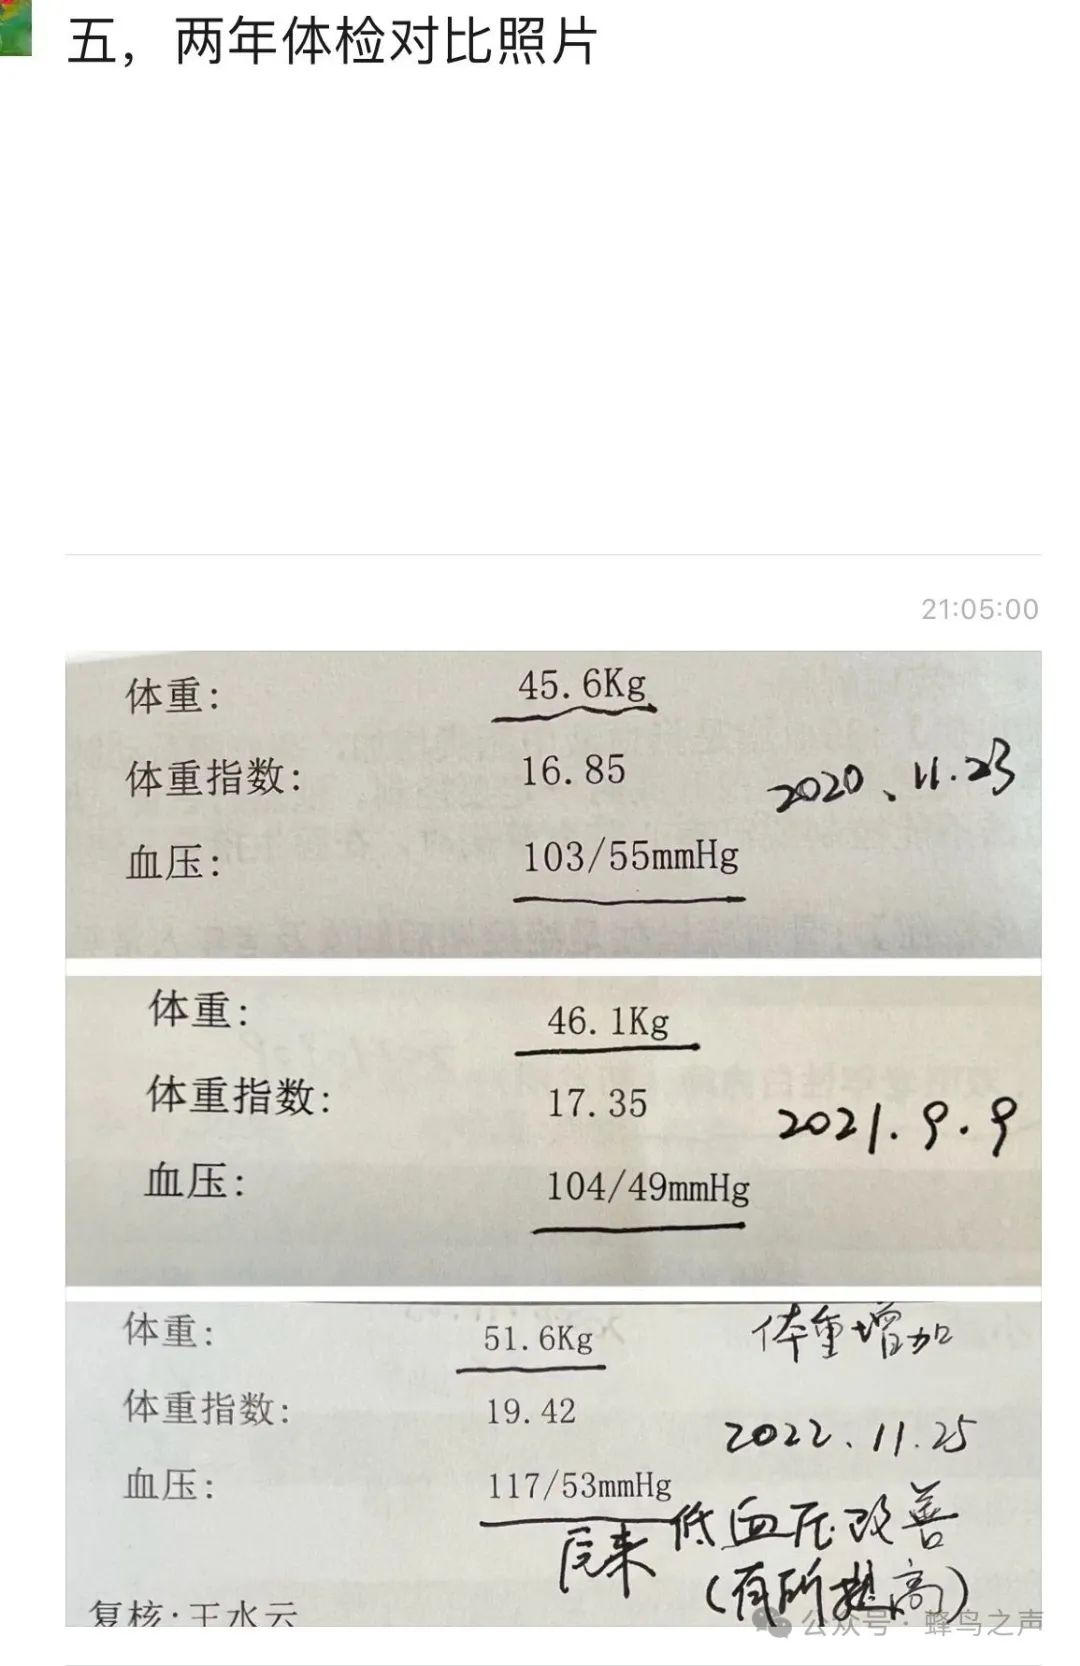 五，两年体检对比照片
21:05:00
体重： 45.6Kg
体重指数： 16.85 2020、11.23
血压： 103/55mmHg
体重： 46.1Kg
体重指数： 17.35 2021.9.9
血压： 104/49mmHg
体重： 51.6Kg 体重增加
体重指数： 19.42 2022、11.25
血压： 117/53mmHg
后来 低血压改善
（有所提高）
复核：王水云
公众号·蜂鸟之声